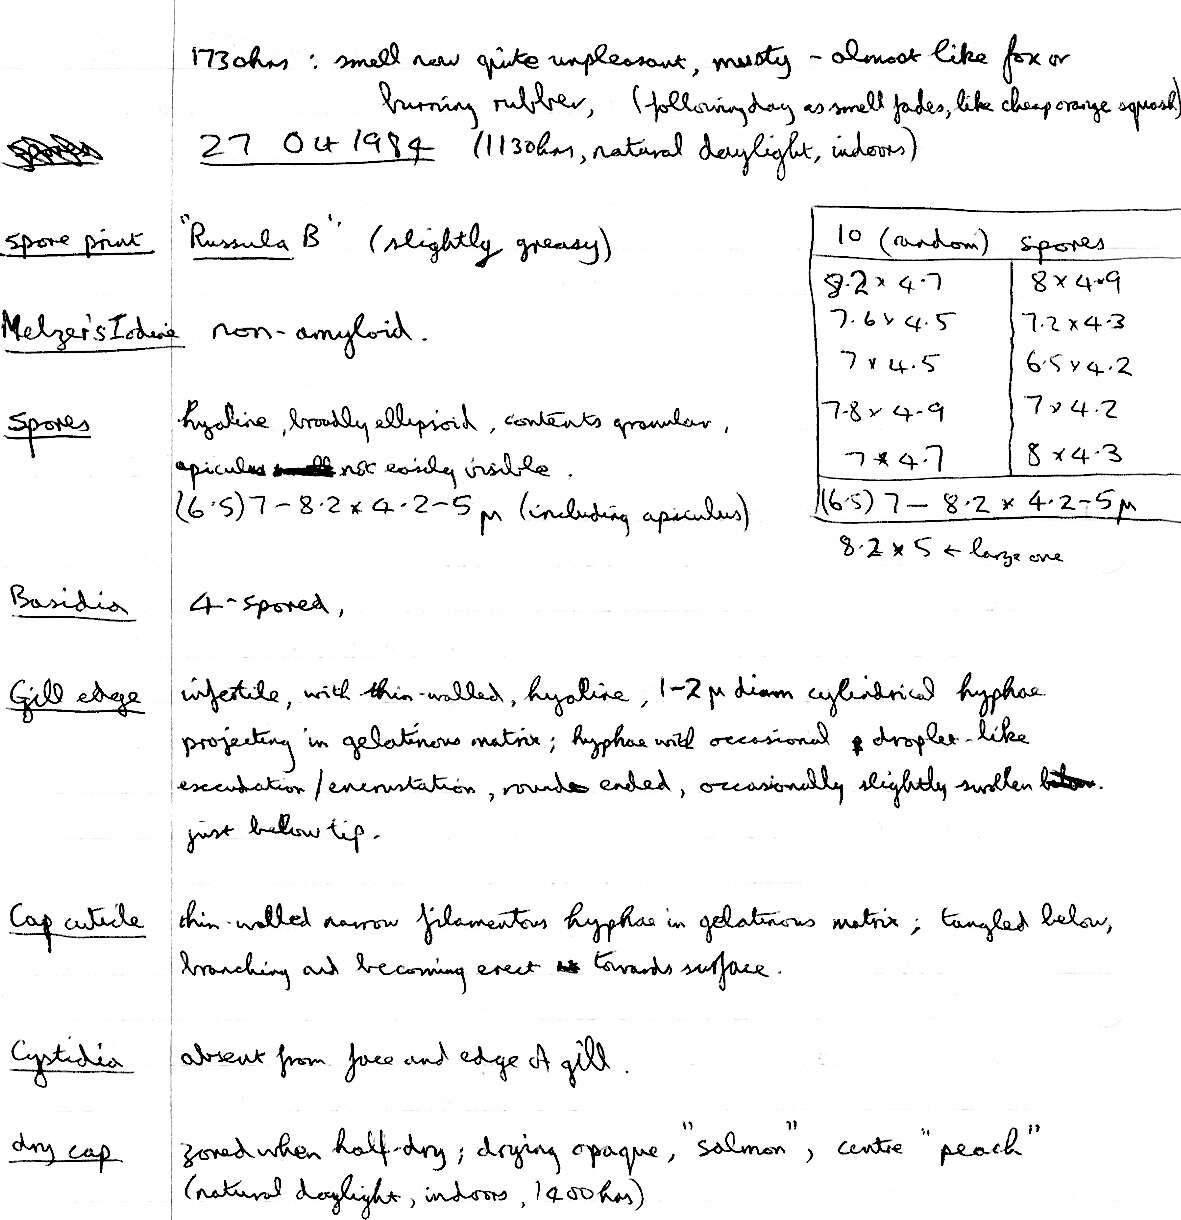 1730hrs : smell now quite unpleasant, musty - almost like fox or
burning rubber, (following day as smell fades, like cheap orange squash)
27 Oct 1984 (1130hrs, natural daylight, indoors)
spore print "Russula B" (slightly greasy)
Melzer's Iodine non-amyloid.
Spores hyaline, broadly ellipsoid, contents granular,
apiculus not easily visible.
(6.5) 7-8.2 x 4.2-5 μ (including apiculus)
10 (random) spores
8.2 x 4.7 8 x 4.9
7.6 x 4.5 7.2 x 4.3
7 x 4.5 6.5 x 4.2
7.8 x 4.9 7 x 4.2
7 x 4.7 8 x 4.3
(6.5) 7 - 8.2 x 4.2-5 μ
8.2 x 5 ← large one
Basidia 4-spored,
Gill edge infertile, with thin-walled, hyaline, 1-2 μ diam cylindrical hyphae
projecting in gelatinous matrix; hyphae with occasional droplet-like
excudation/encrustation, round ended, occasionally slightly swollen
just below tip.
Cap cuticle thin-walled narrow filamentous hyphae in gelatinous matrix; tangled below,
branching and becoming erect towards surface.
Cystidia absent from face and edge of gill.
dry cap zoned when half-dry; drying opaque, "salmon", centre "peach"
(natural daylight, indoors, 1400hrs)